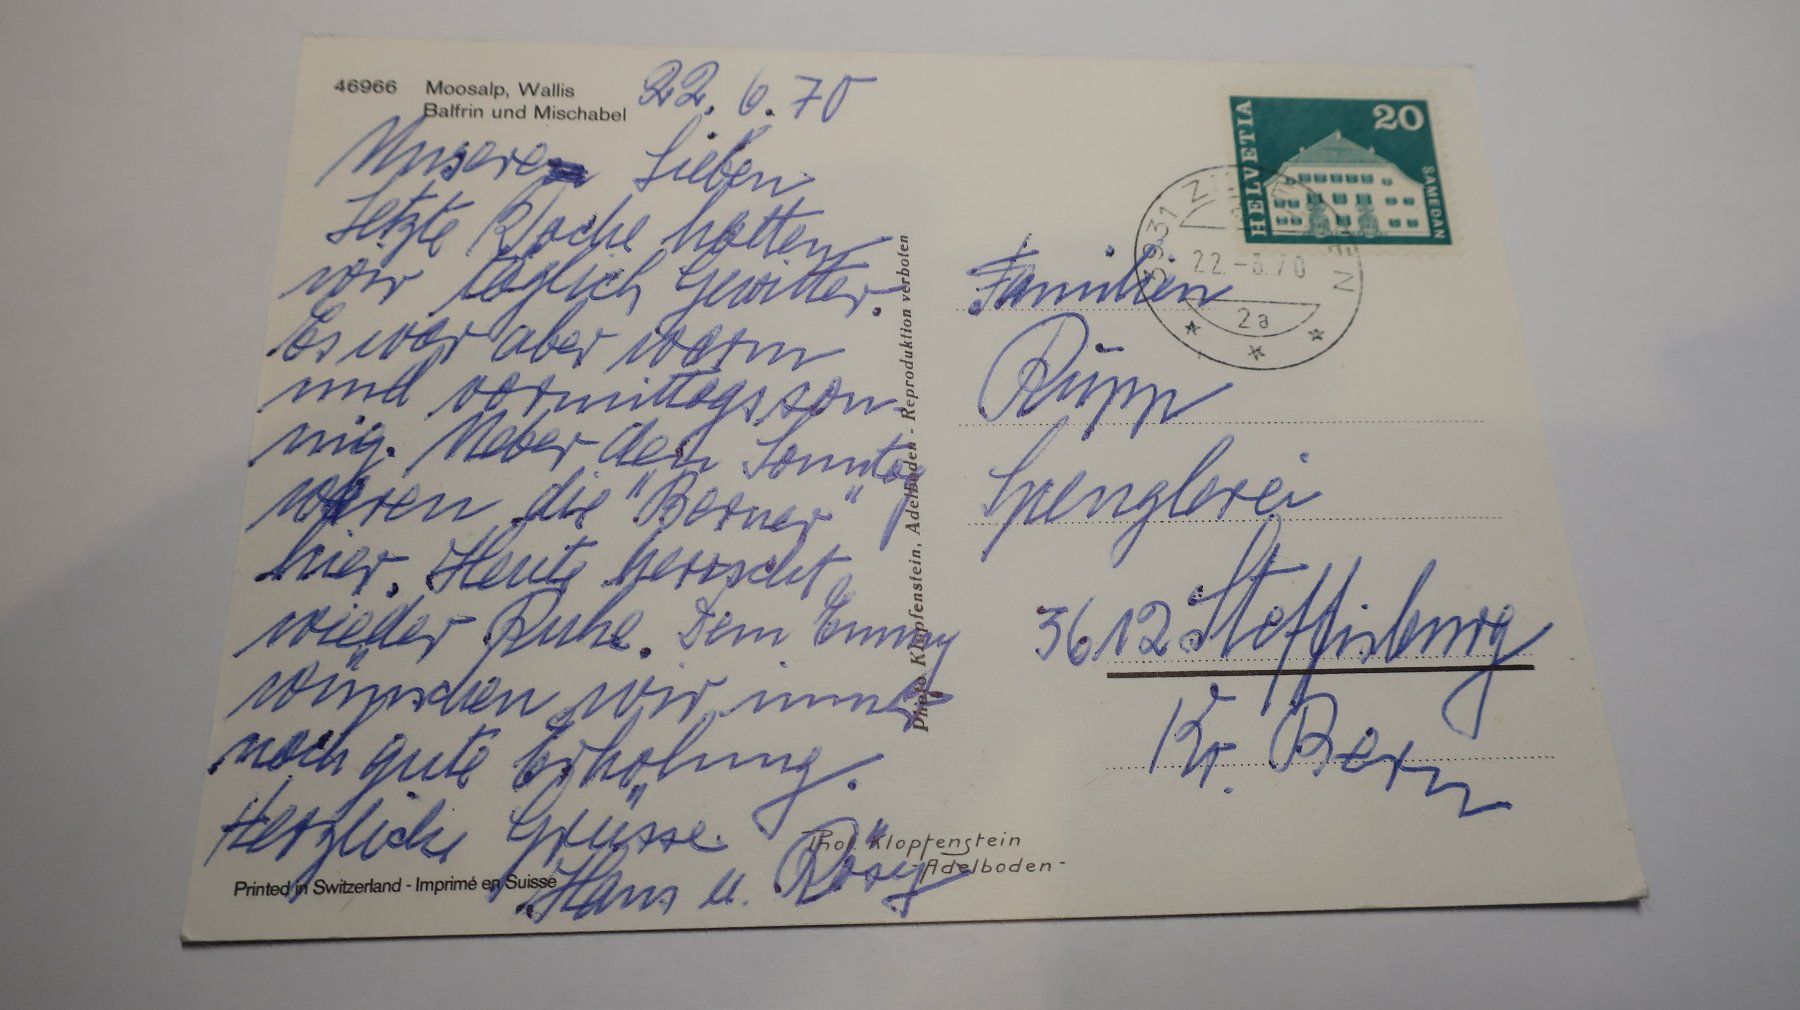 46966 Moosalp, Wallis
Balfrin und Mischabel
22. 6. 70
Unsere Lieben
Letzte Woche hatten
wir täglich Gewitter.
Es war aber warm
und vormittags son-
nig. Ueber den Sonntag
waren die "Berner"
hier. Heute herrscht
wieder Ruhe. Dem Emmy
wünschen wir immer
noch gute Erholung.
Herzliche Grüsse.
Hans u. Rösy
Printed in Switzerland - Imprimé en Suisse
Photo Klopfenstein, Adelboden - Reproduktion verboten
Phot. Klopfenstein
- Adelboden -
HELVETIA
20
SAMEDAN
3931
22.-6.70
2a
Familien
Rupp
Spenglerei
3612 Steffisburg
Kt. Bern